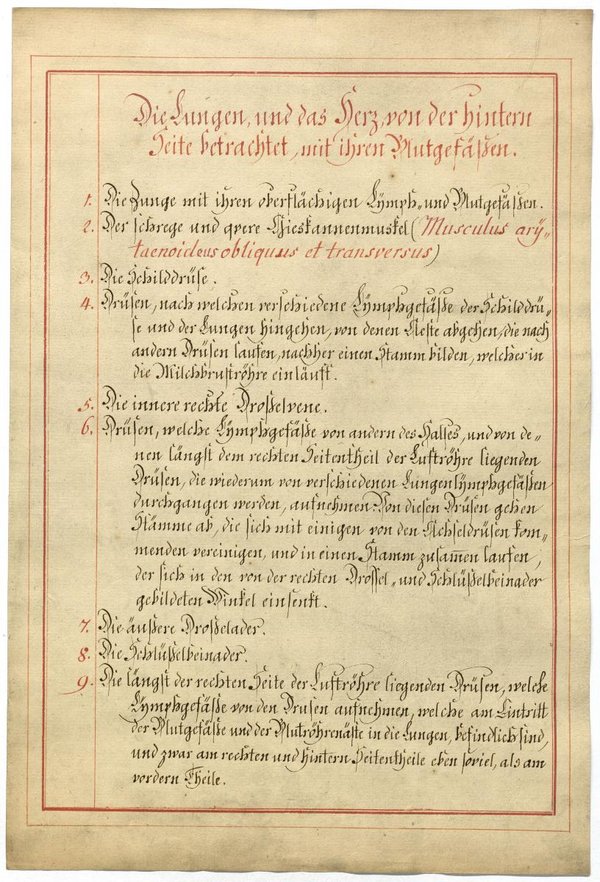 Die Lungen, und das Herz, von der hintern
Seite betrachtet, mit ihren Blutgefäßen.
1. Die Zunge mit ihren oberflächigen Lymph- und Blutgefäßen.
2. Der schrege und qvere Gieskannenmuskel (Musculus ary-
taenoideus obliquus et transversus)
3. Die Schilddrüse.
4. Drüsen, nach welchen verschiedene Lymphgefäße der Schilddrü-
se und der Lungen hingehen, von denen Aeste abgehen, die nach
andern Drüsen laufen, nachher einen Stamm bilden, welcher in
die Milchbruströhre einläuft.
5. Die innere rechte Droßelvene.
6. Drüsen, welche Lymphgefäße von andern des Halses, und von de-
nen längst dem rechten Seitentheil der Luftröhre liegenden
Drüsen, die wiederum von verschiedenen Lungenlymphgefäßen
durchgangen werden, aufnehmen. Von diesen Drüsen gehen
Stämme ab, die sich mit einigen von den Achseldrüsen kom-
menden vereinigen, und in einen Stamm zusamen laufen,
der sich in den von der rechten Drossel- und Schlüßelbeinader
gebildeten Winkel einsenkt.
7. Die äußere Droßelader.
8. Die Schlüßelbeinader.
9. Die längst der rechten Seite der Luftröhre liegenden Drüsen, welche
Lymphgefäße von den Drüsen aufnehmen, welche am Eintritt
der Blutgefäße und der Blutröhrenäste in die Lungen, befindlich sind,
und zwar am rechten und hintern Seitentheile eben soviel, als am
vordern Theile.